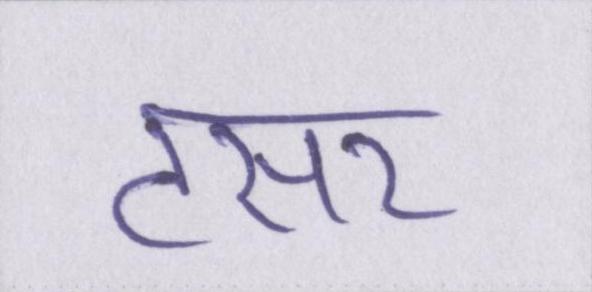 टसर